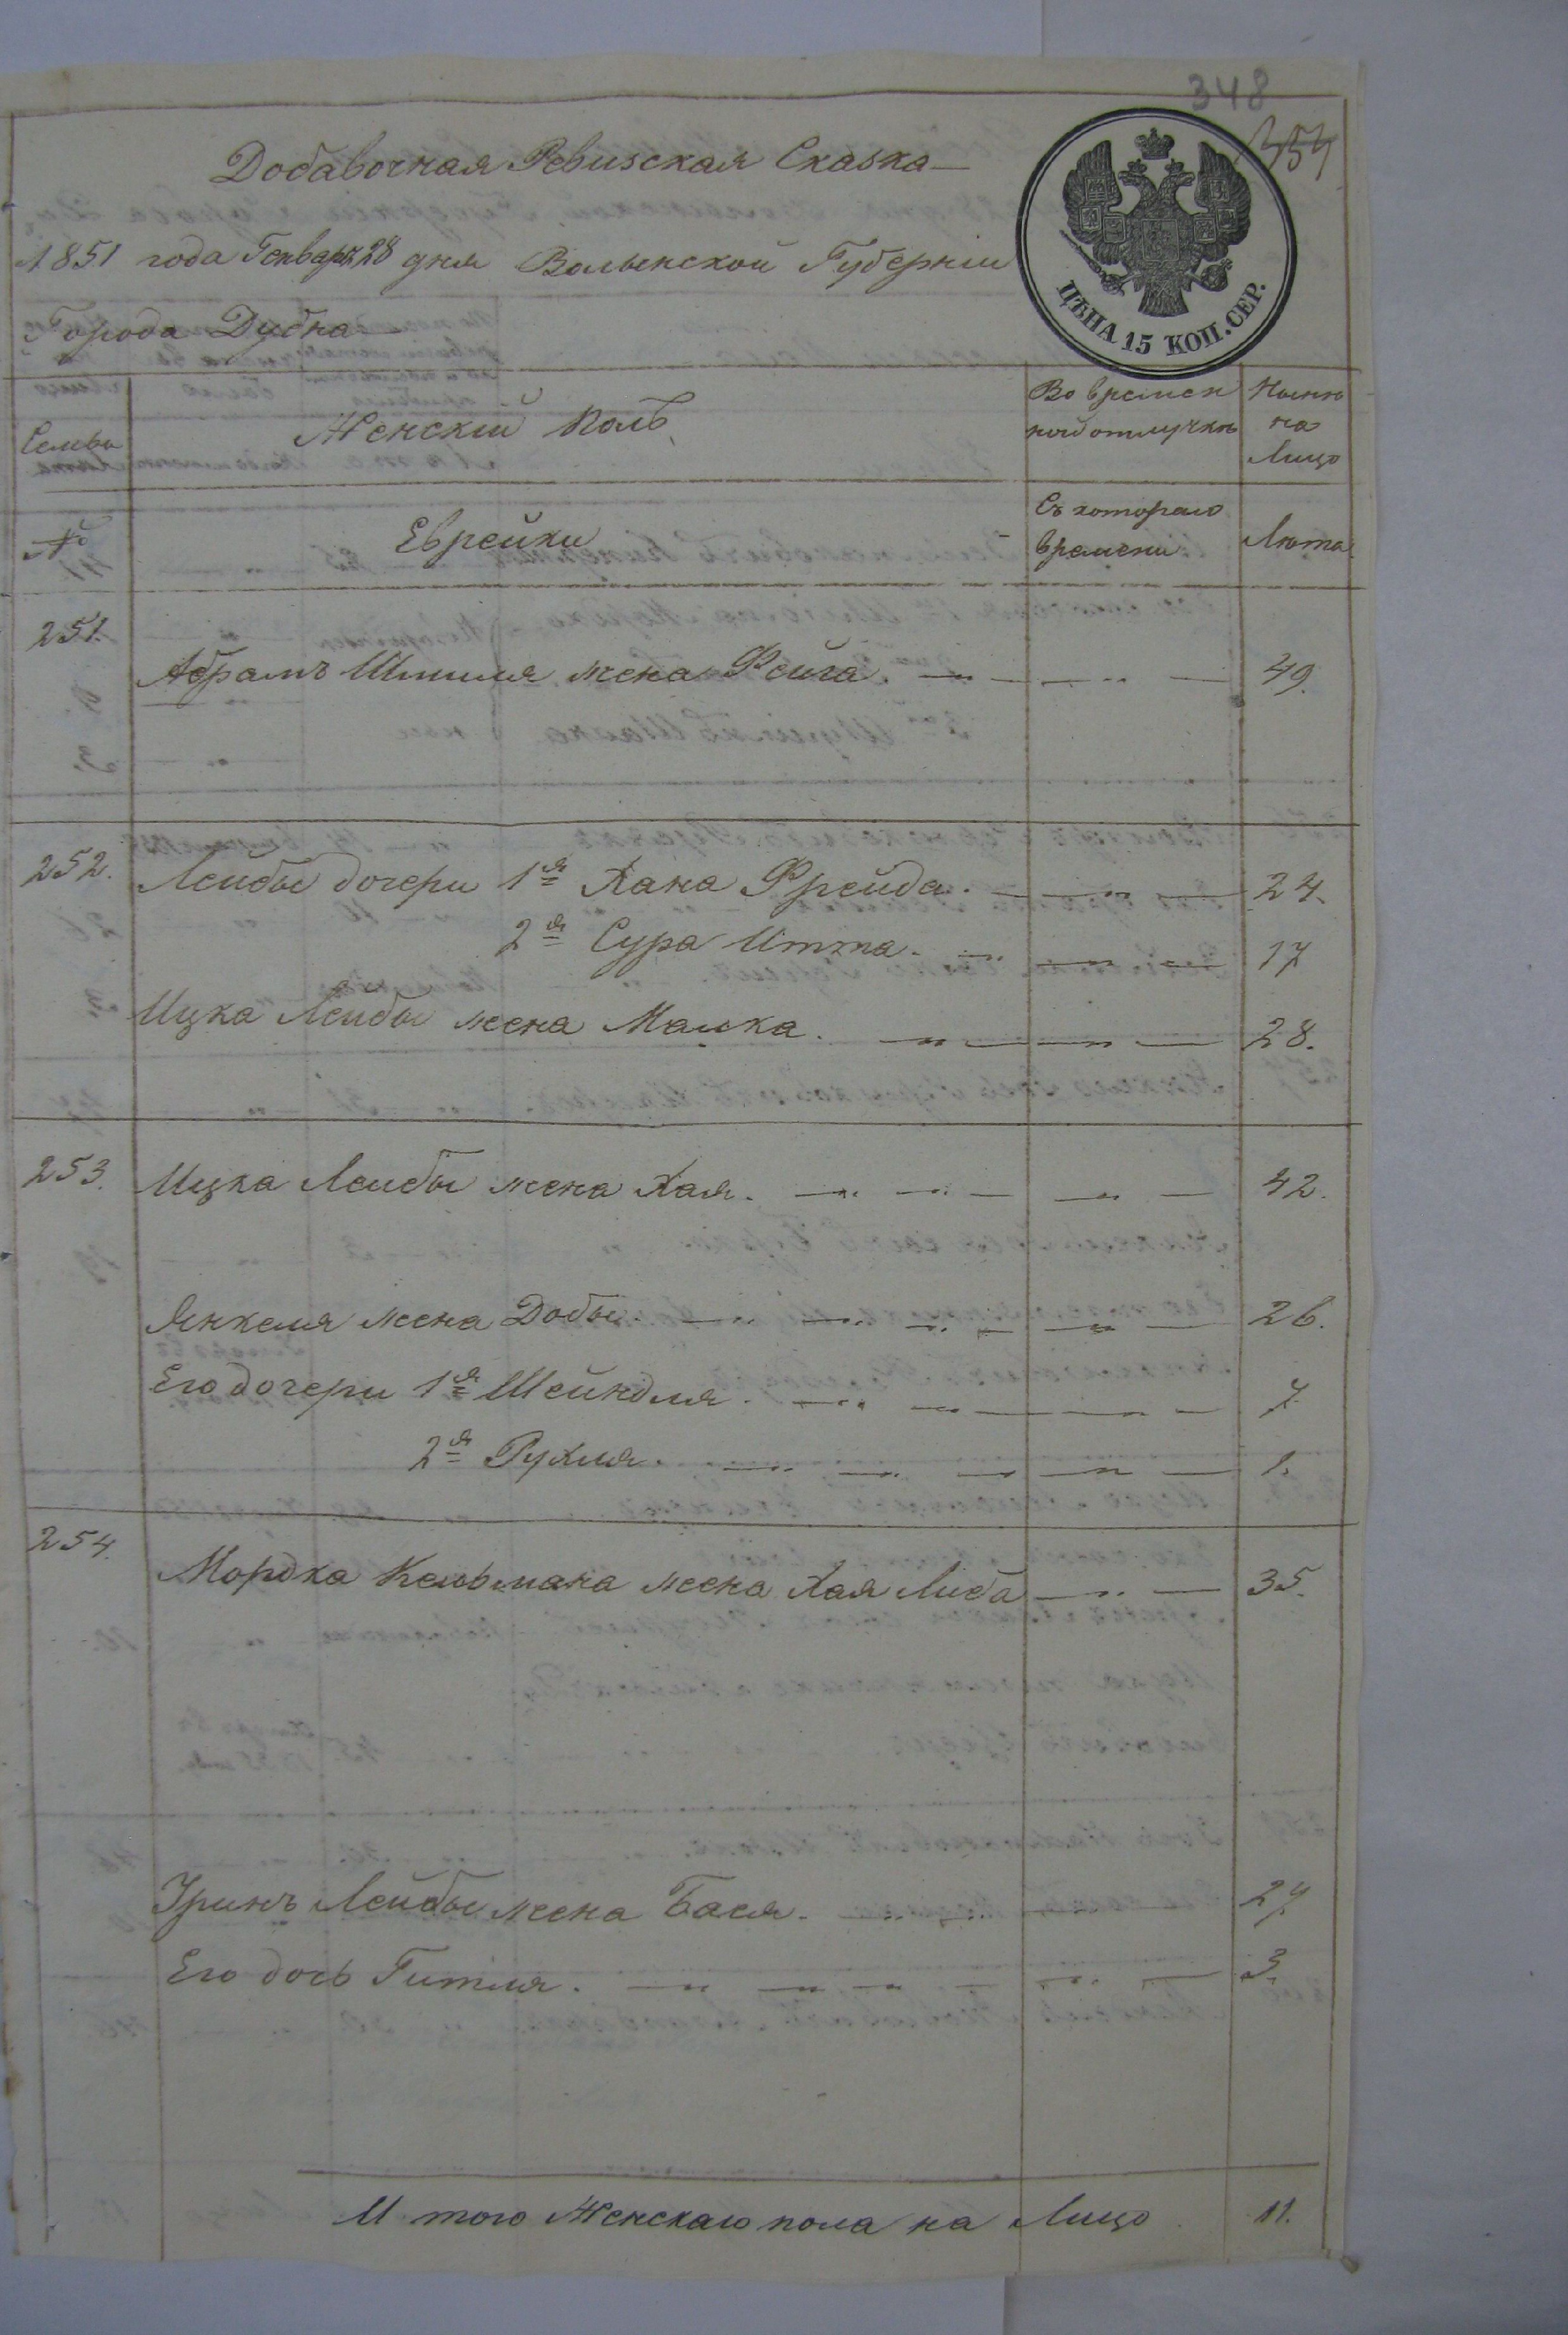 348
354
Добавочная Ревизская Сказка
1851 года Генваря 28 дня Волынской Губерніи
Города Дубна
ЦѢНА 15 КОП. СЕР.
Семьи Женскій Полъ Во времен Нынѣ
ной отлучкѣ на
Лицо
№ Еврейки Съ котораго Лѣта
времени
251. Абрамъ Шмиля жена Фейга. 49.
252. Лейбы дочери 1я Хана Фрейда. 24.
2я Сура Итта. 17
Ицка Лейбы жена Малка. 28.
253. Ицка Лейбы жена Хая. 42.
Янкеля жена Добы. 26.
Его дочери 1я Шейндля. 7
2я Рухля. 1.
254. Мордка Кельмана жена Хая Либа 35.
Лейбы жена Бася. 27
Его дочь Гитля. 3.
И того Женскаго пола на Лицо 11.